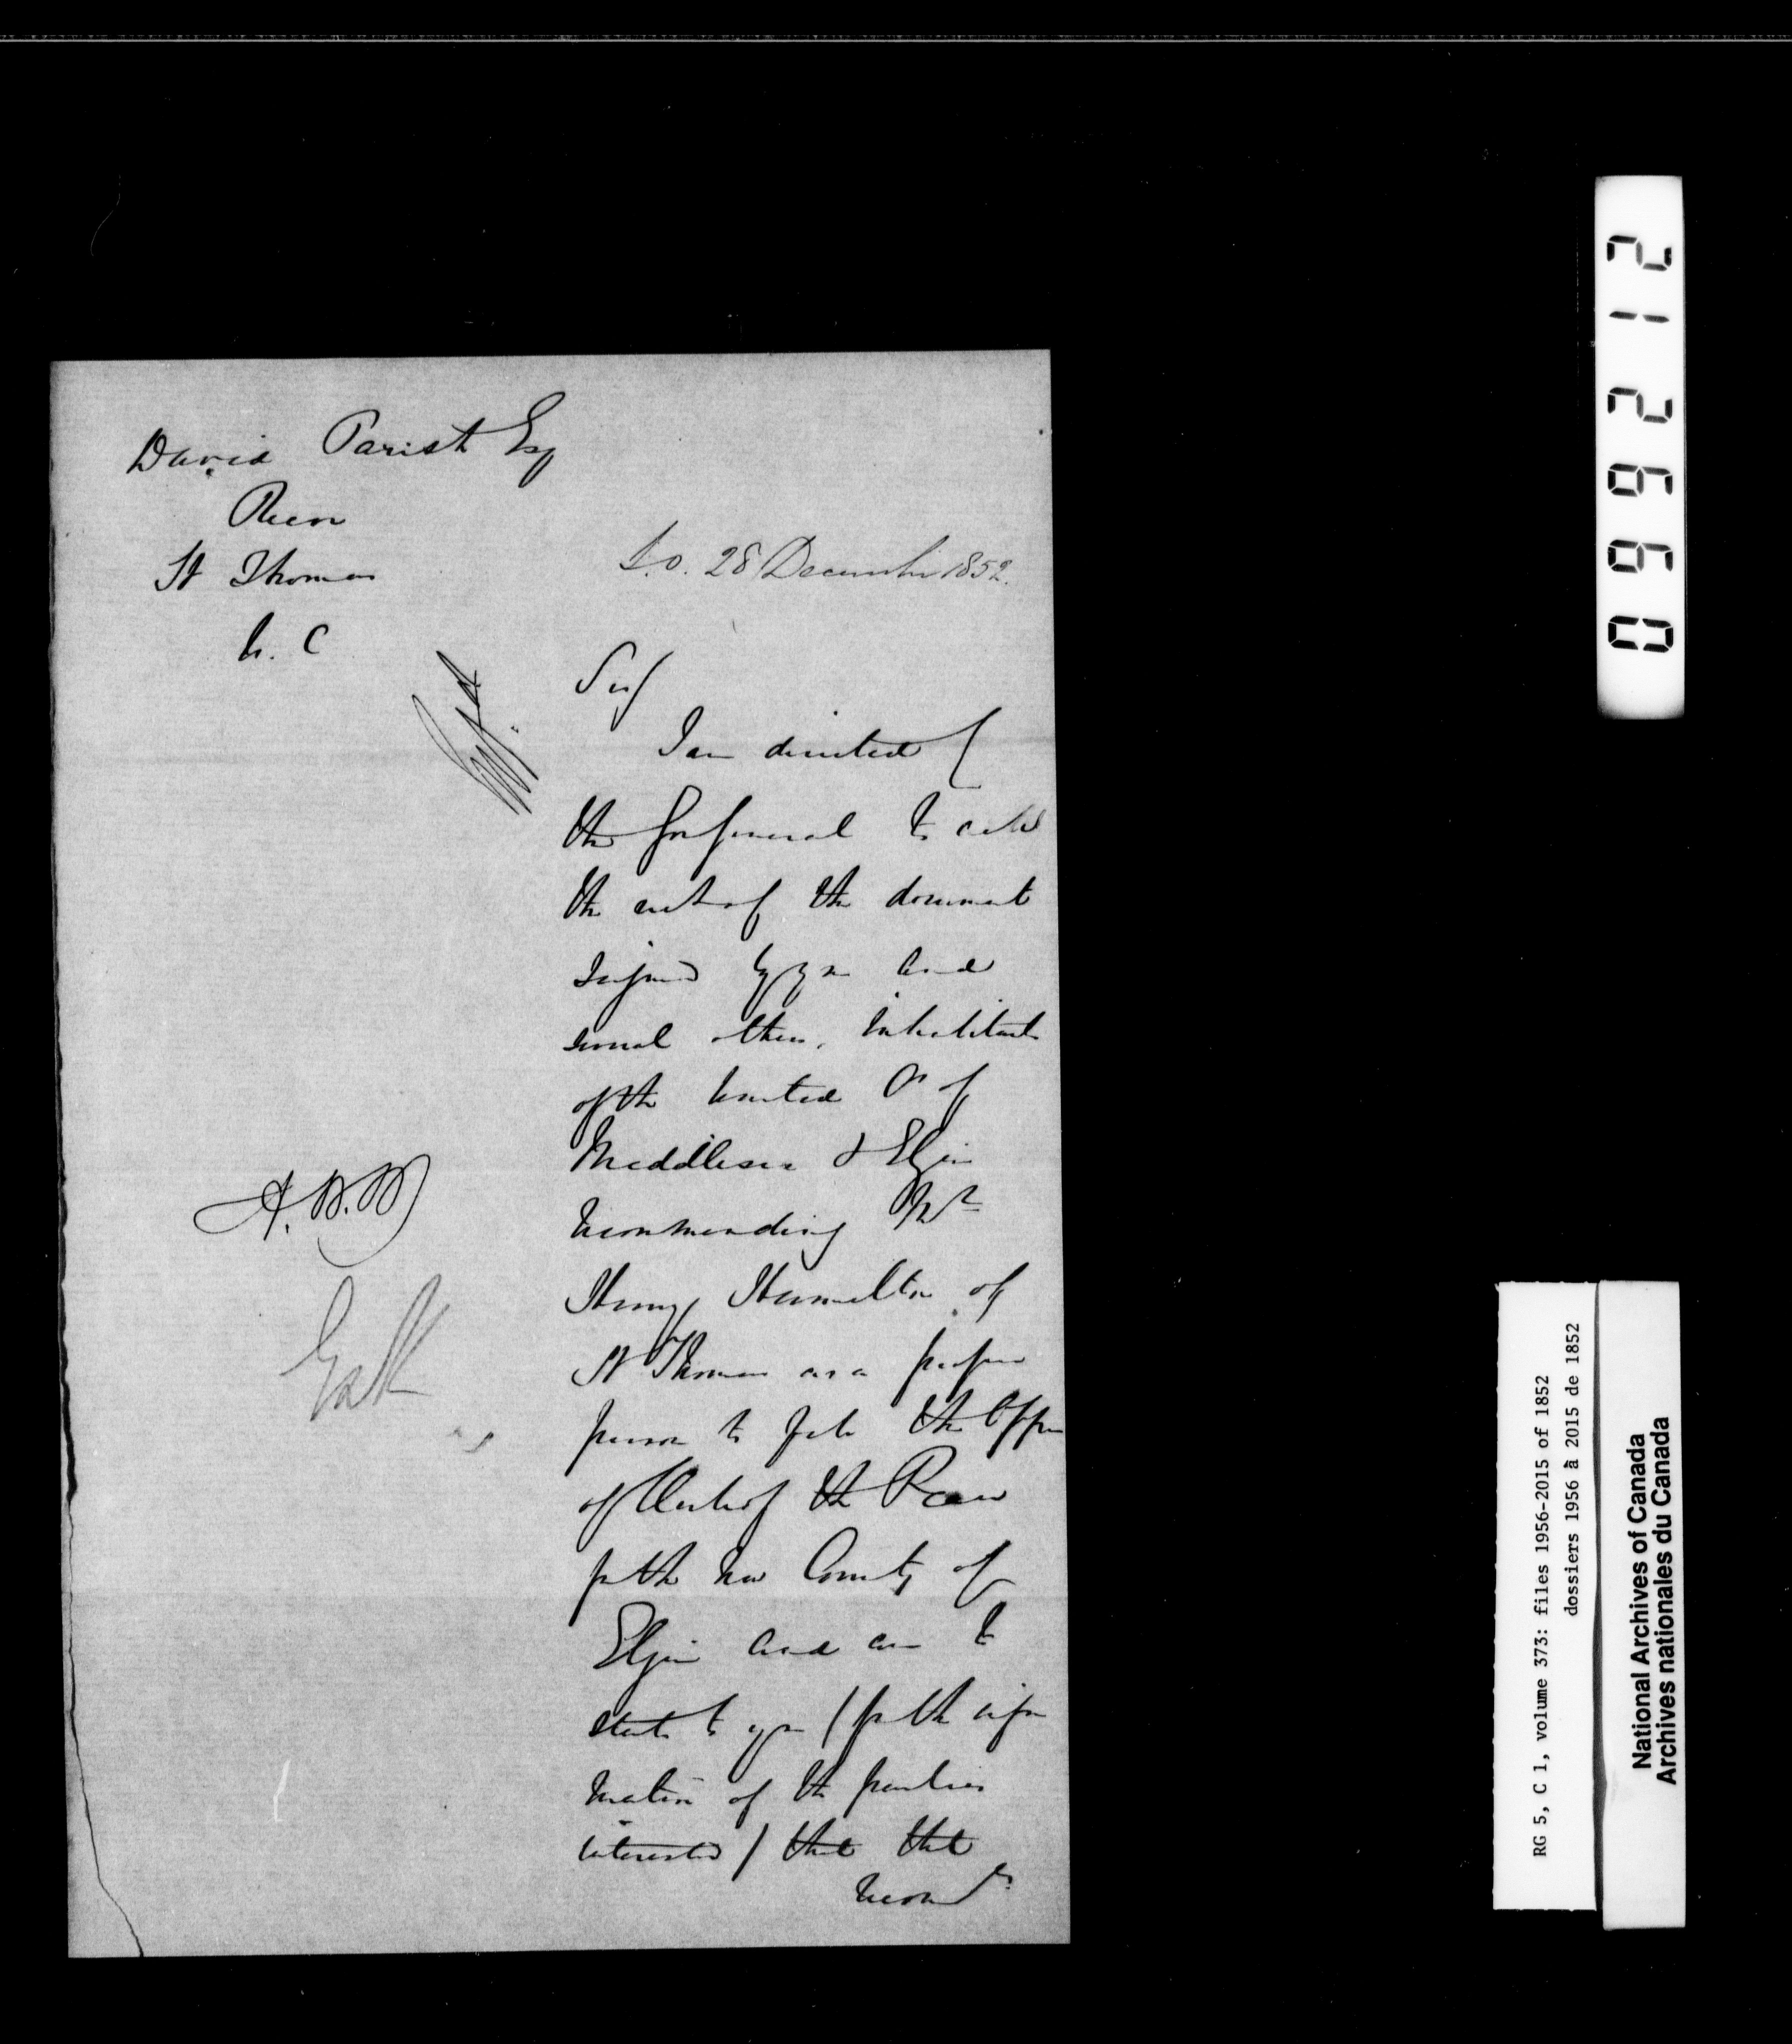 David Parish Esq
Reeve
St Thomas
U. C
S.O. 28 December 1852.
Sir/
I am directed by
the Gov General to ackd
the rect of the document
signed by you and
several others, inhabitants
of the United Cs of
Middlesex & Elgin
recommending Mr
Henry Hamilton of
St Thomas as a proper
person to fill the Office
of Clerk of the Peace
for the new County of
Elgin and am to
state to you / for the infor
mation of the parties
interested / that the
A. N. M
recomdn
0 6 6 2 1 2
RG 5, C 1, volume 373: files 1956-2015 of 1852
dossiers 1956 à 2015 de 1852
National Archives of Canada
Archives nationales du Canada